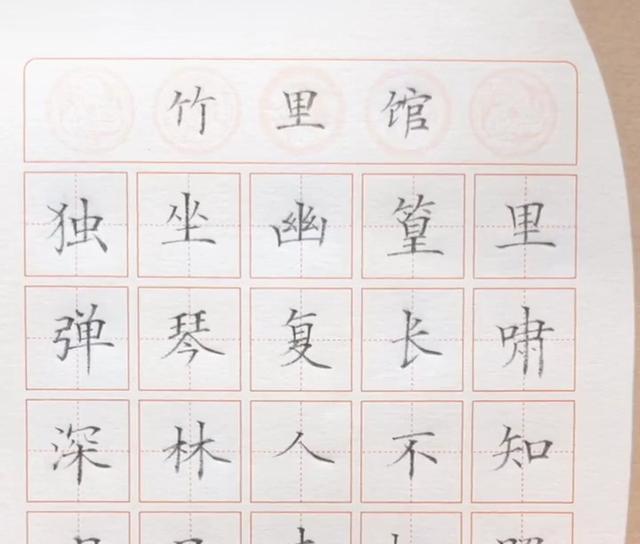 竹里馆
独坐幽篁里
弹琴复长啸
深林人不知